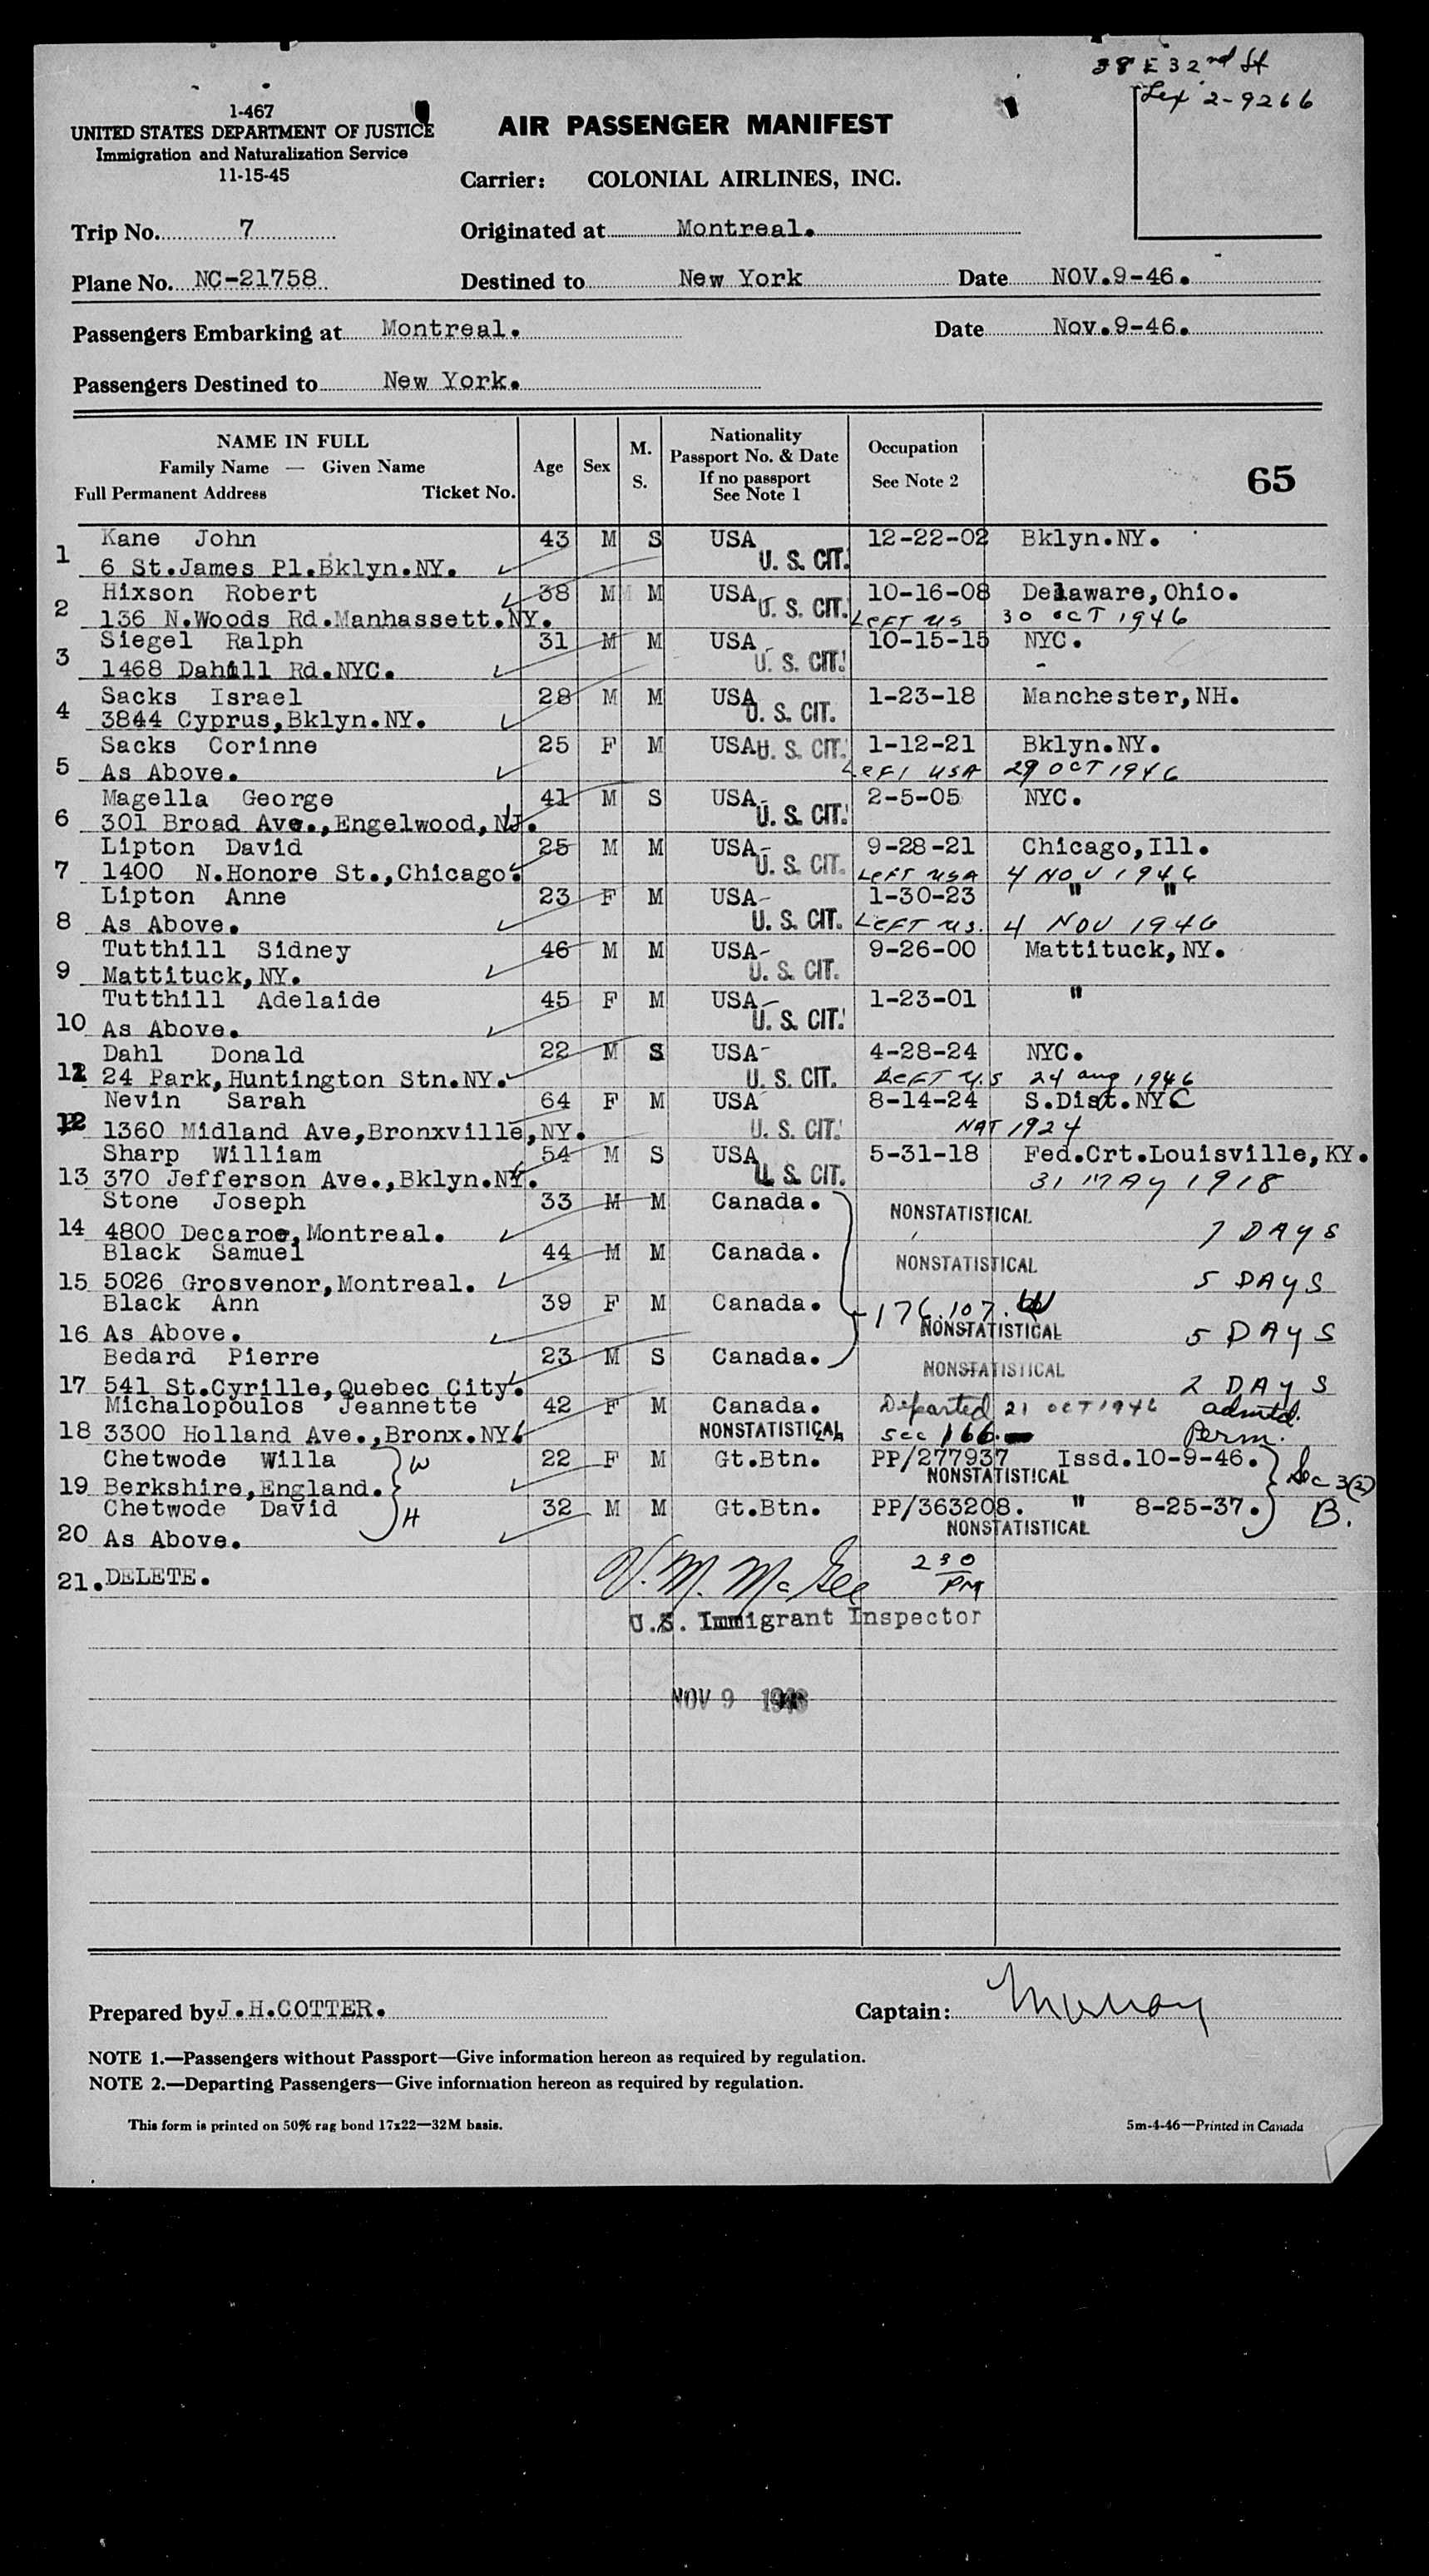 38 E 32nd St
Lex 2-9266
1-467
UNITED STATES DEPARTMENT OF JUSTICE
Immigration and Naturalization Service
11-15-45
AIR PASSENGER MANIFEST
Carrier: COLONIAL AIRLINES, INC.
Trip No. 7 Originated at Montreal.
Plane No. NC-21758 Destined to New York Date NOV.9-46.
Passengers Embarking at Montreal. Date Nov.9-46.
Passengers Destined to New York.
NAME IN FULL
Family Name — Given Name
Full Permanent Address Ticket No.
Age
Sex
M.
S.
Nationality
Passport No. & Date
If no passport
See Note 1
Occupation
See Note 2
65
Kane John 43 M S USA 12-22-02 Bklyn.NY.
1 6 St.James Pl.Bklyn.NY. U. S. CIT.
Hixson Robert 38 M M USA 10-16-08 Delaware,Ohio.
2 136 N.Woods Rd.Manhassett.NY. U. S. CIT. LEFT US 30 OCT 1946
Siegel Ralph 31 M M USA 10-15-15 NYC.
3 1468 Dahill Rd.NYC. U. S. CIT.
Sacks Israel 28 M M USA 1-23-18 Manchester,NH.
4 3844 Cyprus,Bklyn.NY. U. S. CIT.
Sacks Corinne 25 F M USA U. S. CIT. 1-12-21 Bklyn.NY.
5 As Above. LEFT USA 29 OCT 1946
Magella George 41 M S USA- 2-5-05 NYC.
6 301 Broad Ave.,Engelwood,NJ. U. S. CIT.
Lipton David 25 M M USA- 9-28-21 Chicago,Ill.
7 1400 N.Honore St.,Chicago. U. S. CIT. LEFT USA 4 NOV 1946
Lipton Anne 23 F M USA- 1-30-23 " "
8 As Above. U. S. CIT. LEFT US. 4 NOV 1946
Tutthill Sidney 46 M M USA- 9-26-00 Mattituck,NY.
9 Mattituck,NY. U. S. CIT.
Tutthill Adelaide 45 F M USA- 1-23-01 "
10 As Above. U. S. CIT.
Dahl Donald 22 M S USA- 4-28-24 NYC.
11 24 Park,Huntington Stn.NY. U. S. CIT. LEFT U.S 24 aug 1946
Nevin Sarah 64 F M USA 8-14-24 S.Dist.NYC
12 1360 Midland Ave,Bronxville,NY. U. S. CIT. NAT 1924
Sharp William 54 M S USA 5-31-18 Fed.Crt.Louisville,KY.
13 370 Jefferson Ave.,Bklyn.NY. U. S. CIT. 31 MAY 1918
Stone Joseph 33 M M Canada. NONSTATISTICAL
14 4800 Decaroe,Montreal. 7 DAYS
Black Samuel 44 M M Canada. NONSTATISTICAL
15 5026 Grosvenor,Montreal. 5 DAYS
Black Ann 39 F M Canada. 176.107.
16 As Above. NONSTATISTICAL 5 DAYS
Bedard Pierre 23 M S Canada. NONSTATISTICAL
17 541 St.Cyrille,Quebec City. 2 DAYS
Michalopoulos Jeannette 42 F M Canada. Departed 21 OCT 1946 admtd.
18 3300 Holland Ave.,Bronx.NY. NONSTATISTICAL Sec 166. Perm.
Chetwode Willa W 22 F M Gt.Btn. PP/277937 Issd.10-9-46.
19 Berkshire,England. NONSTATISTICAL Sec 3(2)
Chetwode David H 32 M M Gt.Btn. PP/363208. " 8-25-37. B.
20 As Above. NONSTATISTICAL
21. DELETE. V. M. McGee 2 30 PM
U.S. Immigrant Inspector
NOV 9 1946
Prepared by J.H.COTTER. Captain: Murray
NOTE 1.—Passengers without Passport—Give information hereon as required by regulation.
NOTE 2.—Departing Passengers—Give information hereon as required by regulation.
This form is printed on 50% rag bond 17x22—32M basis. 5m-4-46—Printed in Canada